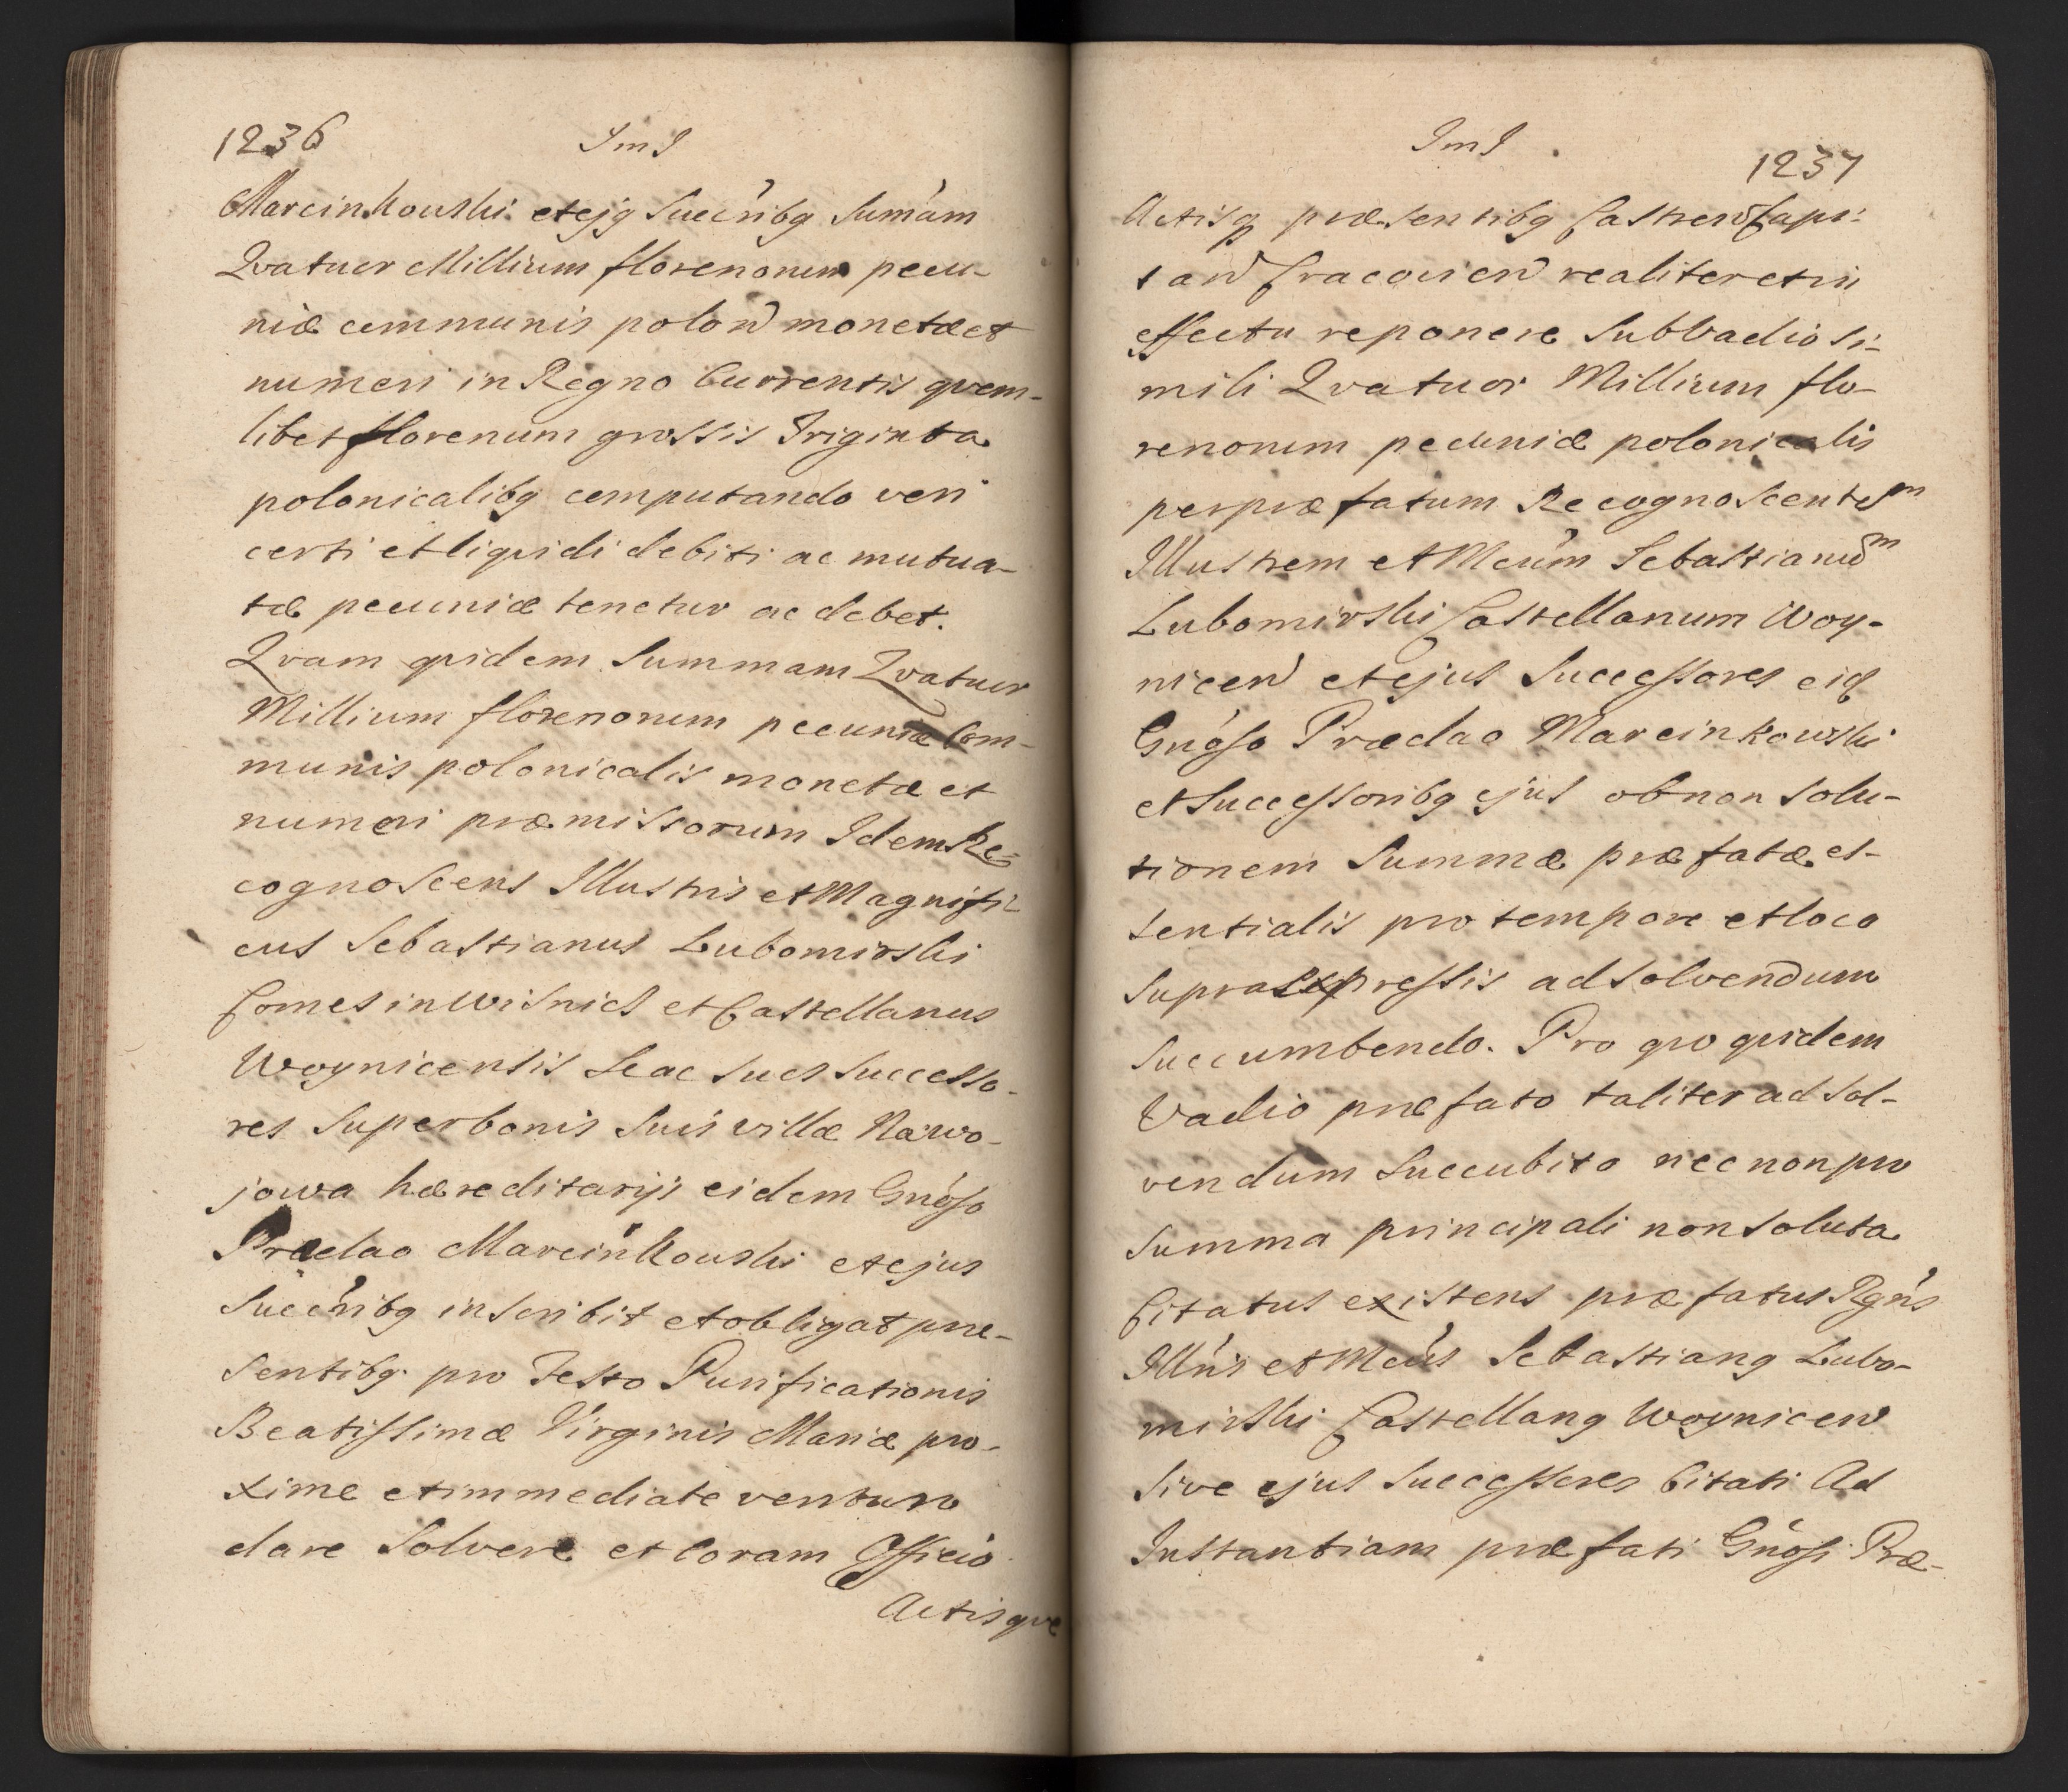 1236
ImJ
Marcinkowski et ejq Succribq Sumam
Qvatuor Millium florenorum pecu-
niæ communis polon monetæ et
numeri in Regno Currentis qvem-
libet florenum grossis Triginta
polonicalibq computando veri
certi et liqvidi debiti ac mutua-
tæ pecuniæ tenetur ac debet.
Qvam qvidem Summam Qvatuor
Millium florenorum pecuniæ Com-
munis polonicalis monetæ et
numeri præmissorum Idem Re-
cognoscens Illustris et Magnifi-
cus Sebastianus Lubomirski
Comes in Wisnicz et Castellanus
Woynicensis Se ac Suos Successo-
res Super bonis Suis villæ Nawo-
jowa hæreditarijs eidem Gnoso
Prædao Marcinkowski et ejus
Succribq inscribit et obligat præ-
sentibq pro Festo Purificationis
Beatissimæ Virginis Mariæ pro-
xime et immediate venturo
dare Solvere et Coram Officio
Actisqve
ImJ
1237
Actisq præsentibq Castren Capi-
tan Cracovien realiter et in
effectu reponere Sub Vadio Si-
mili Qvatuor Millium flo-
renorum pecuniæ polonicalis
per præfatum Recognoscentem
Illustrem et Mcum Sebastianum
Lubomirski Castellanum Woy-
nicen et ejus Successores eid
Gnoso Prædao Marcinkowski
et Successoribq ejus ob non Solu-
tionem Summæ præfatæ es-
sentialis pro tempore et loco
Supra expressis ad Solvendum
Succumbendo. Pro qvo qvidem
Vadio præfato taliter ad Sol-
vendum Succubito nec non pro
Summa principali non Soluta
Citatus existens præfatus Rgns
Illris et Mcus Sebastianq Lubo-
mirski Castellanq Woynicen
Sive ejus Successores Citati Ad
Instantiam præfati Gnosi Præ-